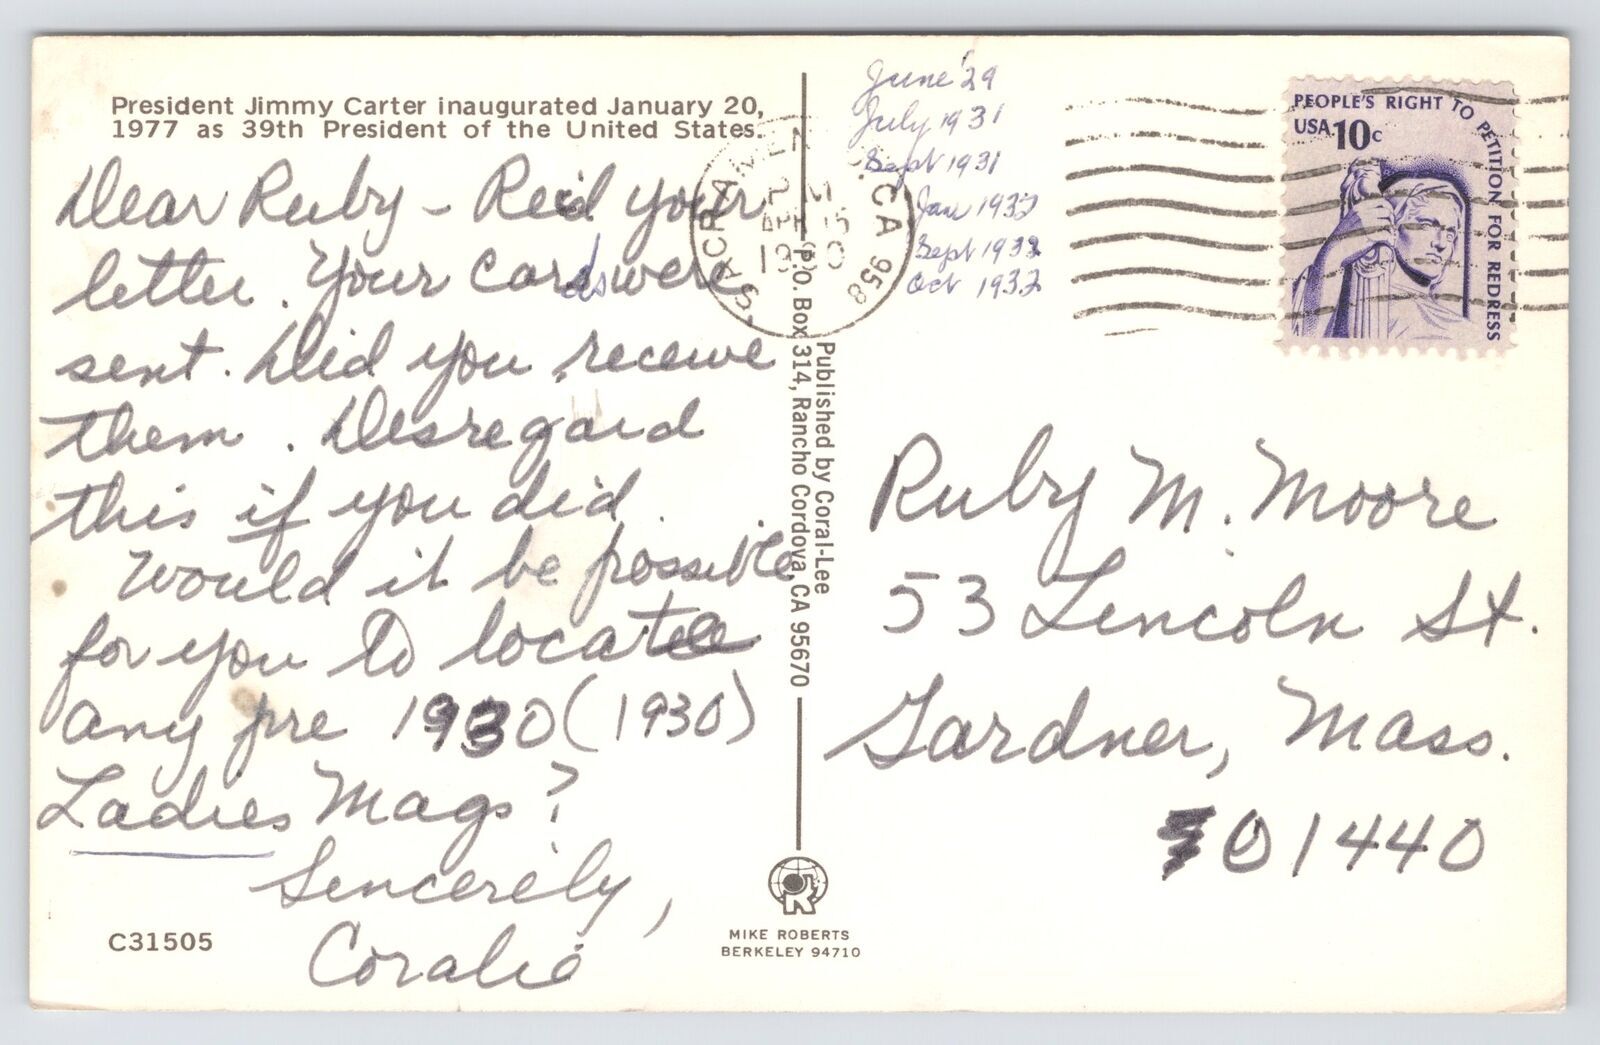 President Jimmy Carter inaugurated January 20,
1977 as 39th President of the United States.
Dear Ruby – Rec'd your
letter. Your cards were
sent. Did you receive
them. Disregard
this if you did.
Would it be possible
for you to locate
any pre 1930 (1930)
Ladies Mags?
Sincerely,
Coralie
C31505
Published by Coral-Lee
P.O. Box 314, Rancho Cordova, CA 95670
MIKE ROBERTS
BERKELEY 94710
June '29
July 1931
Sept 1931
Jan 1932
Sept 1932
Oct 1932
SACRAMEN CA 958
PM
PEOPLE'S RIGHT TO PETITION FOR REDRESS
USA 10c
Ruby M. Moore
53 Lincoln St.
Gardner, Mass.
01440